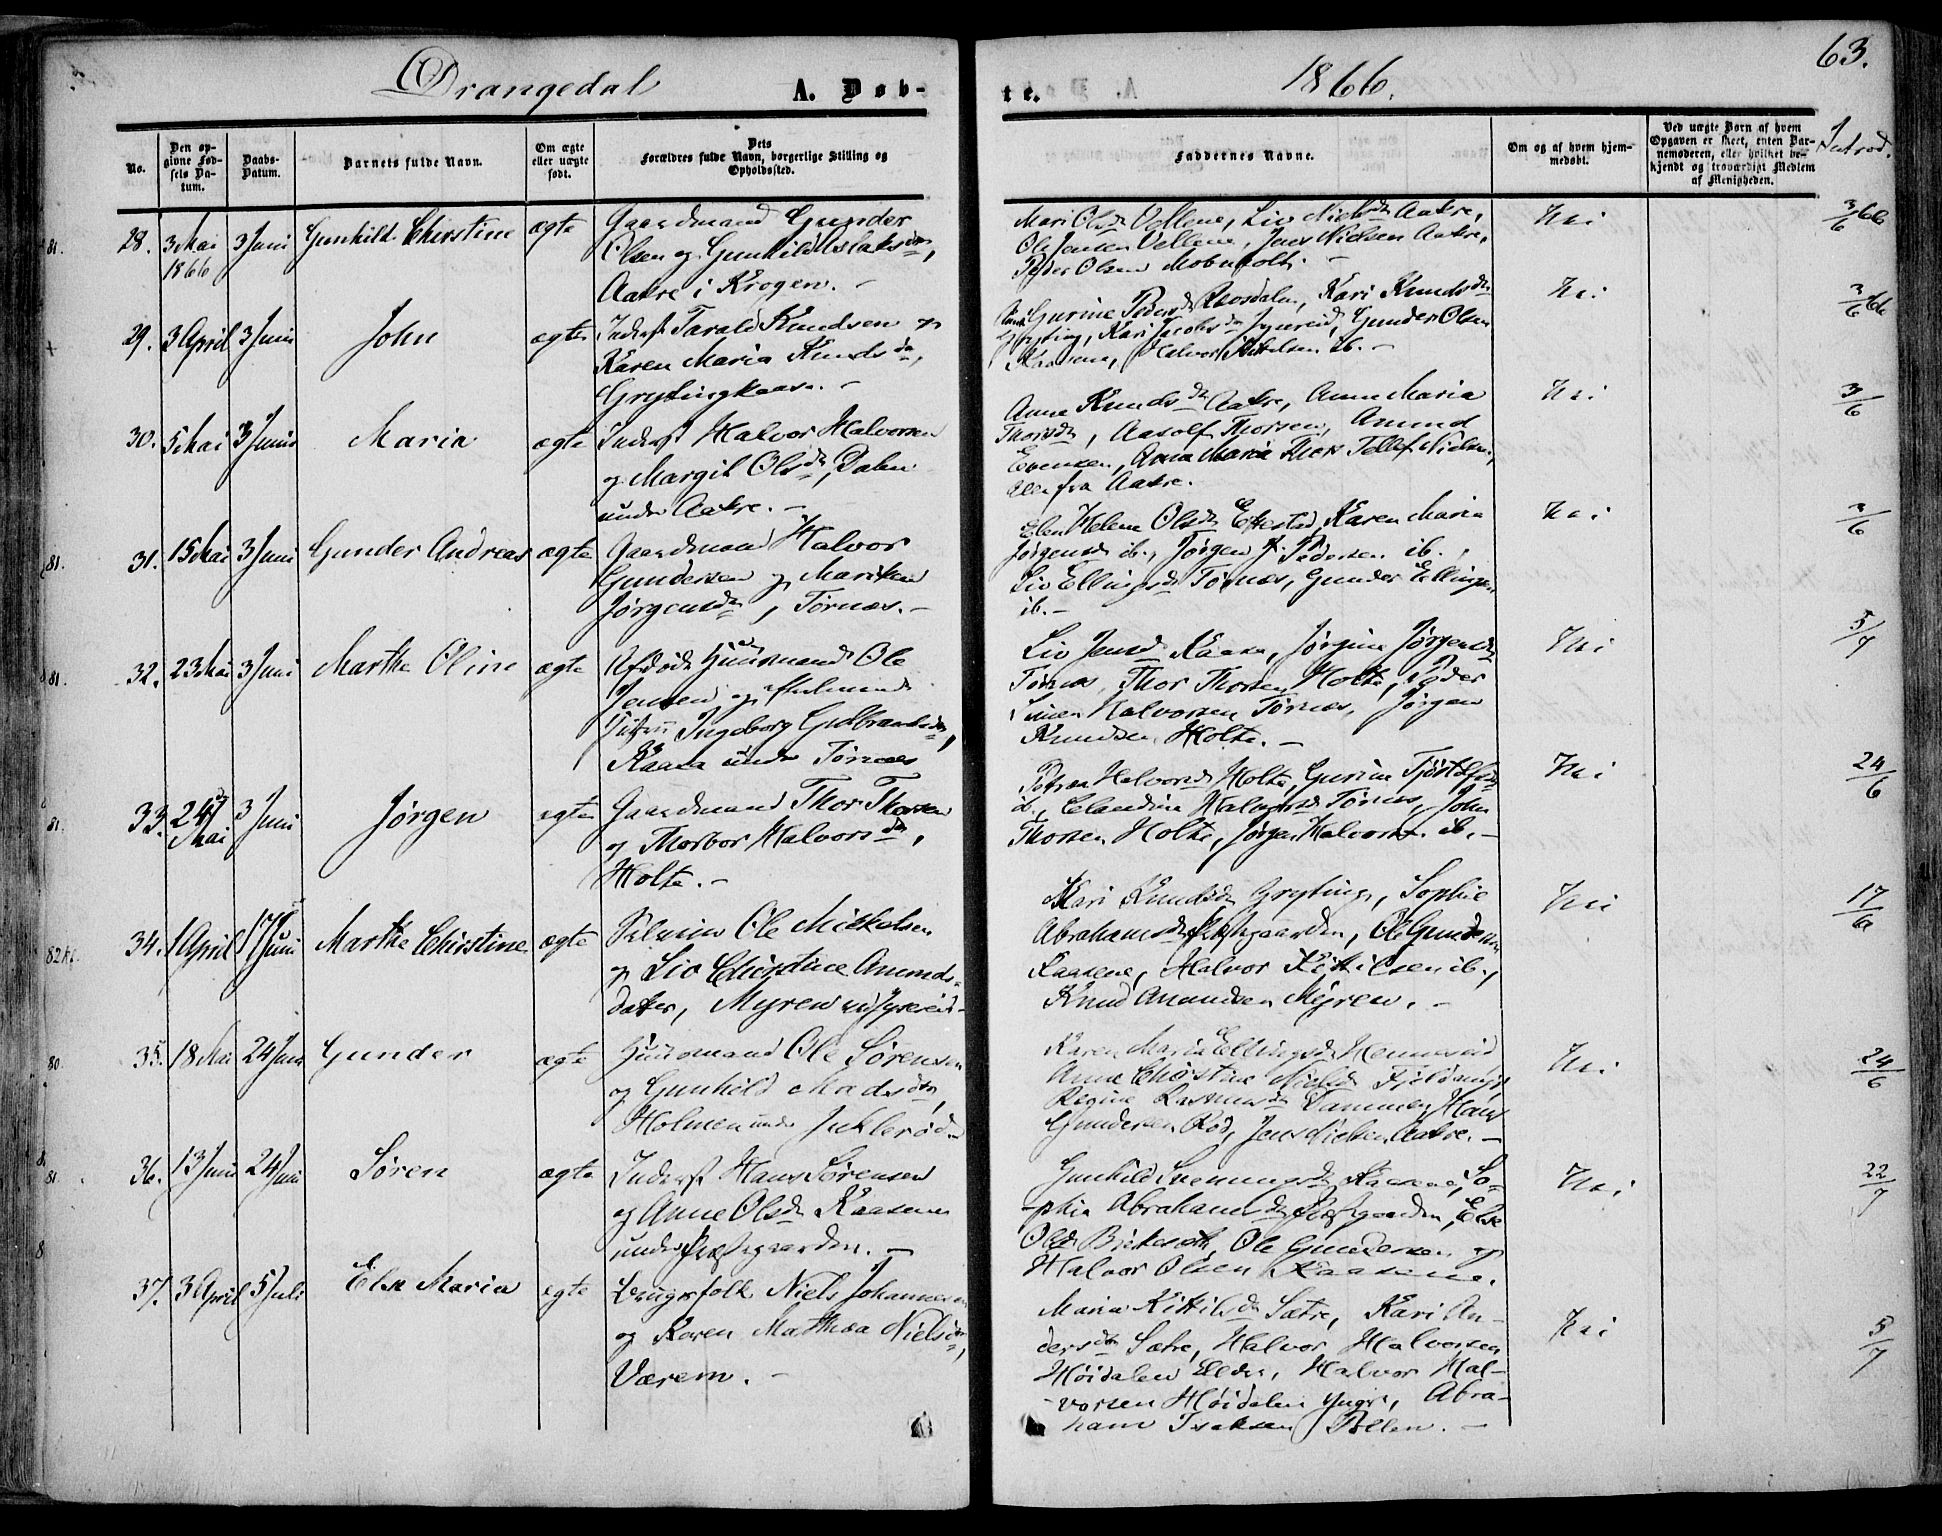 Drangedal A. Døb-
te. 1866. 63.
No.
Den op-
givne Fød-
sels Da-
tum.
Daabs-
Datum.
Barnets fulde Navn.
Om ægte
eller uægte
født.
Dets
Forældres fulde Navn, borgerlige Stilling og
Opholdssted.
Faddernes Navne.
Om og af hvem hjem-
medøbt.
Ved uægte Børn af hvem
Opgaven er skeet, enten Bar-
nemoderen, eller hvilket be-
kjendt og troværdigt Medlem
af Menigheden.
Introd.
81. 28. 3 Mai 1866 3 Juni Gunhild Chirstine ægte Gaardmand Gunder
Olsen og Gunhild Aslaksdtr,
Aakre i Krogen. -
Mari Olsdr Vellene, Liv Nielsdr Aakre,
Ole Jensen Vellene, Jens Nielsen Aakre,
Peder Olsen
Nei 3/6 66
29. 3 April 3 Juni John ægte Inderst Tarald Knudsen og
Karen Maria Knudsdr,
Grytingkaasa. -
Gurine Pedersdr Kari Knudsdr
Gryting, Kari Jacobsdr Gunder Olsen
Kaasene, Halvor Kittilsen ib. -
Nei 3/6 66
30. 5 Mai 3 Juni Maria ægte Inderst Halvor Halvorsen
og Margit Olsdr, Dalen
under Aakre. -
Anne Knudsdr Aakre, Anne Maria
Thorsdr, Aasolf Thorsen, Amund
Evensen, Tellef Nielsen,
alle fra Aakre.
Nei 3/6
81. 31. 15 Mai 3 Juni Gunder Andreas ægte Gaardmand Halvor
Gundersen og Mariken
Jørgensdr, Tørnæs. -
Elen Helene Olsdr Ekestad, Karen Maria
Jørgensdr ib., Jørgen Pedersen ib.,
Liv Ellingsdr Tørnæs, Gunder Ellingsen
ib. -
Nei 3/6
81. 32. 23 Mai 3 Juni Marthe Oline ægte Afdøde Huusmand Ole
Jensen og
Ingeborg Gulbrandsdr,
Kaasa under Tørnæs
Liv Jensdr Kaasa, Jørgine Jørgensdr
Tørnæs, Thor Thorsen Holte, Peder
Simen Halvorsen Tørnæs, Jørgen
Knudsen Holte. -
Nei 5/7
81. 33. 24 Mai 3 Juni Jørgen ægte Gaardmand Thor Thorsen
og Thorbor Halvorsdr,
Holte. -
Halvorsdr Holte, Gurine Tjøstolfsdr
ib., Elandine Halvorsdr Tørnæs, John
Thorsen Holte, Jørgen Halvorsen ib. -
Nei 24/6
34. 1 April 17 Juni Marthe Chirstine ægte Selveier Ole Mickelsen
og Liv Chirstine Amunds-
datter, Myren
Mari Knudsdr Gryting, Sophie
Abrahamsdr Præstgaarden, Ole Gundersen
Kaasene, Halvor Kittilsen ib.,
Knud Amundsen Myren. -
Nei 17/6
80. 35. 18 Mai 24 Juni Gunder ægte Huusmand Ole Sørensen
og Gunhild Madsdtr,
Holmen under
Karen Maria Ellingsdr Henneseid
Anne Chirstine Nielsdr
Regine Rasmusdr Dammen, Hans
Gundersen Rød, Jens Nielsen Aakre. -
Nei 24/6
81. 36. 13 Juni 24 Juni Søren ægte Inderst Hans Sørensen
og Anne Olsdr Kaasene
under Præstgaarden. -
Gunhild Svenningsdr Kaasene, So-
phie Abrahamsdr Præstgaarden, Else
Olsdr Ole Gundersen og
Halvor Olsen Kaasene.
Nei 22/7
37. 3 April 5 Juli Else Maria ægte Brugerfolk Niels Johannesen
og Karen Mathea Nielsdtr,
Værem. -
Maria Kittilsdr Sætre, Kari An-
dersdtr Sætre, Halvor Halvorsen
Høidalen ældre, Halvor Hal-
vorsen Høidalen yngre, Abra-
ham Isaksen Pollen. -
Nei 5/7